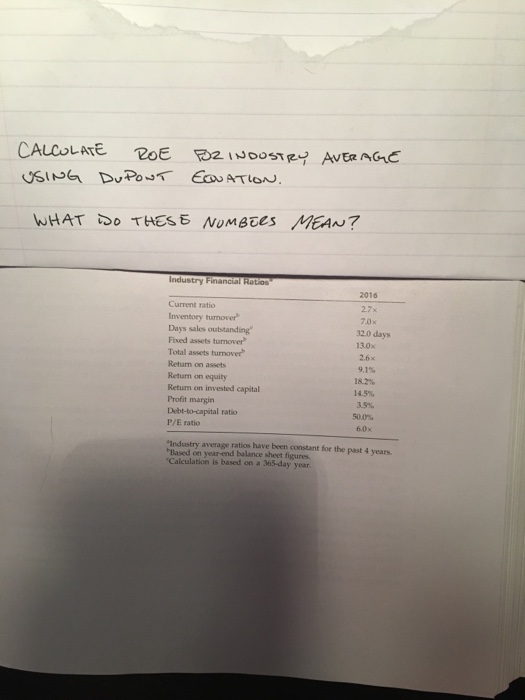 CALCULATE ROE FOR INDUSTRY AVERAGE
USING DUPONT EQUATION.
WHAT DO THESE NUMBERS MEAN?
Industry Financial Ratiosᵃ
2016
Current ratio 2.7×
Inventory turnoverᵇ 7.0×
Days sales outstandingᶜ 32.0 days
Fixed assets turnoverᵇ 13.0×
Total assets turnoverᵇ 2.6×
Return on assets 9.1%
Return on equity 18.2%
Return on invested capital 14.5%
Profit margin 3.5%
Debt-to-capital ratio 50.0%
P/E ratio 6.0×
ᵃIndustry average ratios have been constant for the past 4 years.
ᵇBased on year-end balance sheet figures.
ᶜCalculation is based on a 365-day year.